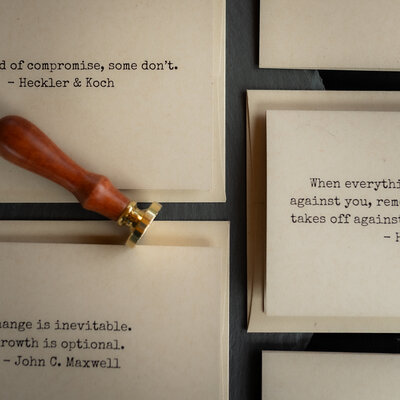 d of compromise, some don't.
– Heckler & Koch
When everythi
against you, rem
takes off against
– H
hange is inevitable.
rowth is optional.
– John C. Maxwell